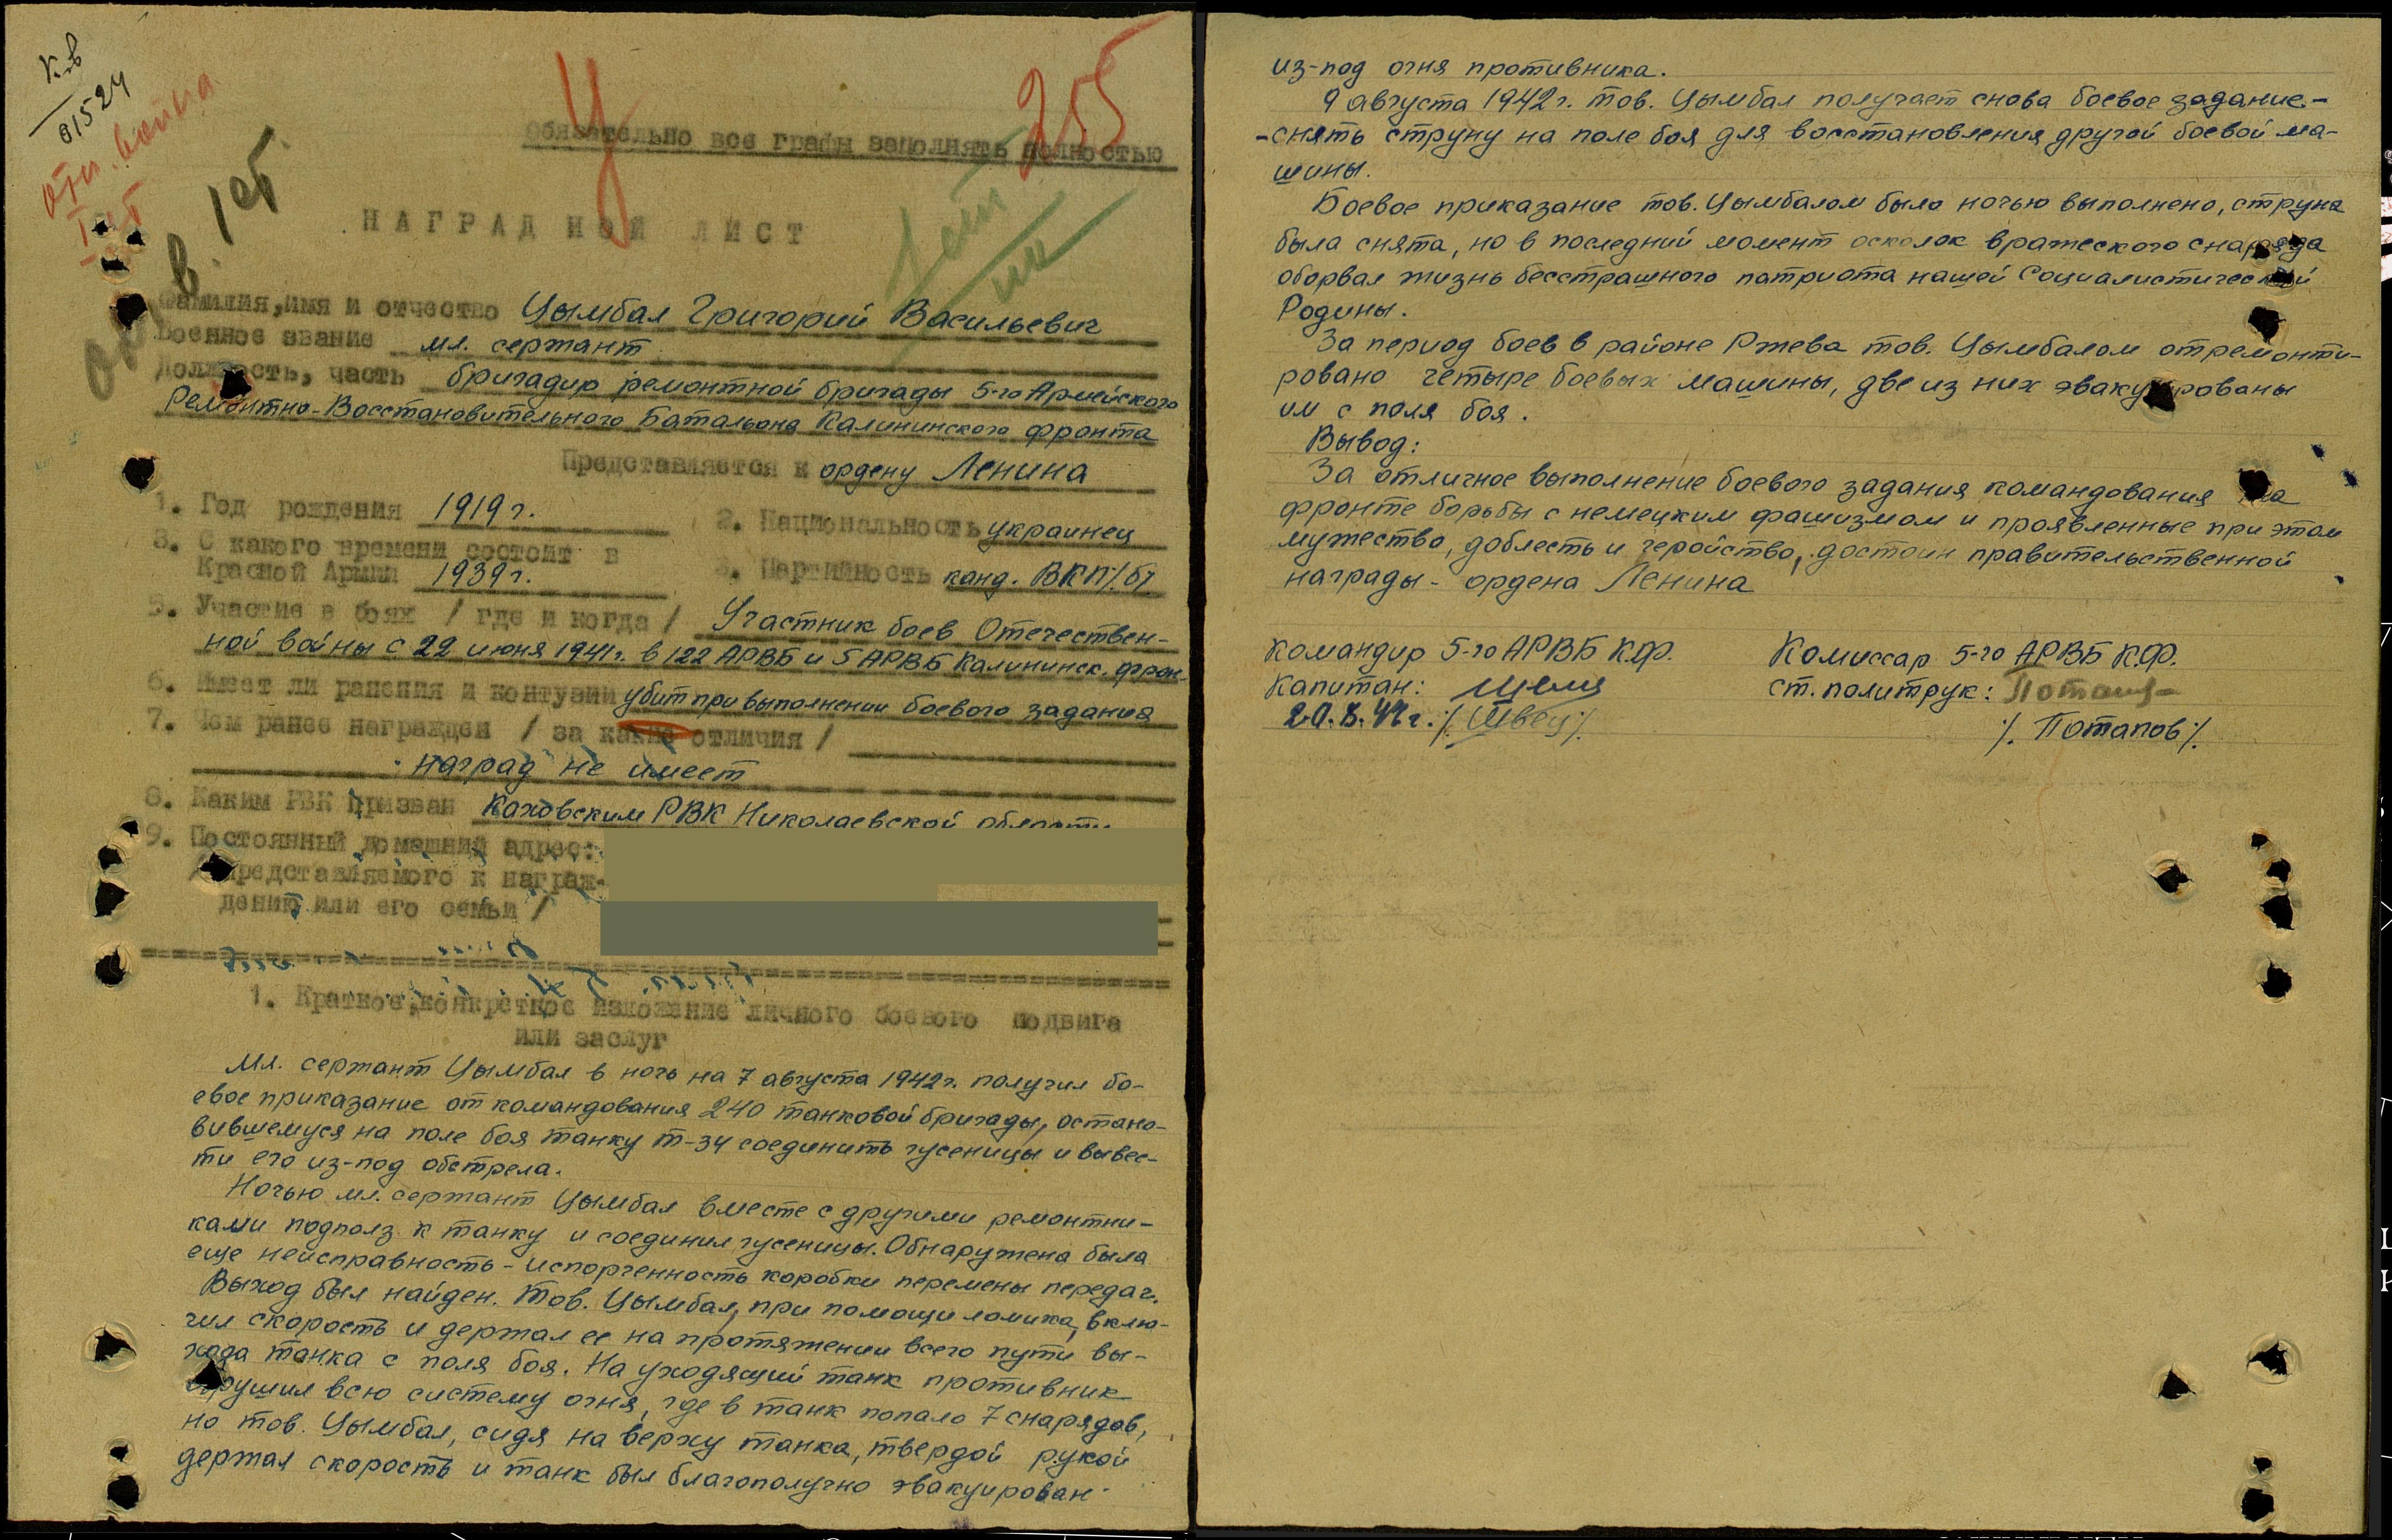 Кв
01524
отч. война
I ст
в. 1ст.
Ц
255
Обязательно все графы заполнять полностью
НАГРАДНОЙ ЛИСТ
Фамилия, имя и отчество Цымбал Григорий Васильевич
Военное звание мл. сержант
Должность, часть бригадир ремонтной бригады 5-го Армейского
Ремонтно-Восстановительного Батальона Калининского фронта
Представляется к ордену Ленина
1. Год рождения 1919 г. 2. Национальность украинец
3. С какого времени состоит в
Красной Армии 1939 г. Партийность канд. ВКП/б/
5. Участие в боях / где и когда / Участник боев Отечествен-
ной войны с 22 июня 1941 г. в 122 АРВБ и 5 АРВБ Калининск. фрон.
6. Имеет ли ранения и контузии убит при выполнении боевого задания
7. Чем ранее награжден / за какие отличия /
наград не имеет
8. Каким РВК призван Каховским РВК Николаевской области
9. Постоянный домашний адрес:
/представляемого к награж-
дению или его семьи /
1. Краткое, конкретное изложение личного боевого подвига
или заслуг
Мл. сержант Цымбал в ночь на 7 августа 1942 г. получил бо-
евое приказание от командования 240 танковой бригады, остано-
вившемуся на поле боя танку Т-34 соединить гусеницы и вывес-
ти его из-под обстрела.
Ночью мл. сержант Цымбал вместе с другими ремонтни-
ками подполз к танку и соединил гусеницы. Обнаружена была
еще неисправность - испорченность коробки перемены передач.
Выход был найден. Тов. Цымбал, при помощи ломика, вклю-
чил скорость и держал ее на протяжении всего пути вы-
хода танка с поля боя. На уходящий танк противник
обрушил всю систему огня, где в танк попало 7 снарядов,
но тов. Цымбал, сидя на верху танка, твердой рукой
держал скорость и танк был благополучно эвакуирован
из-под огня противника.
9 августа 1942 г. тов. Цымбал получает снова боевое задание -
- снять струну на поле боя для восстановления другой боевой ма-
шины.
Боевое приказание тов. Цымбалом было ночью выполнено, струна
была снята, но в последний момент осколок вражеского снаряда
оборвал жизнь бесстрашного патриота нашей Социалистической
Родины.
За период боев в районе Ржева тов. Цымбалом отремонти-
ровано четыре боевых машины, две из них эвакуированы
им с поля боя.
Вывод:
За отличное выполнение боевого задания командования на
фронте борьбы с немецким фашизмом и проявленные при этом
мужество, доблесть и геройство, достоин правительственной
награды - ордена Ленина
Командир 5-го АРВБ К.Ф.
Капитан:
20.8.42 г. /Швец/
Комиссар 5-го АРВБ К.Ф.
ст. политрук: Потапов
/. Потапов/.